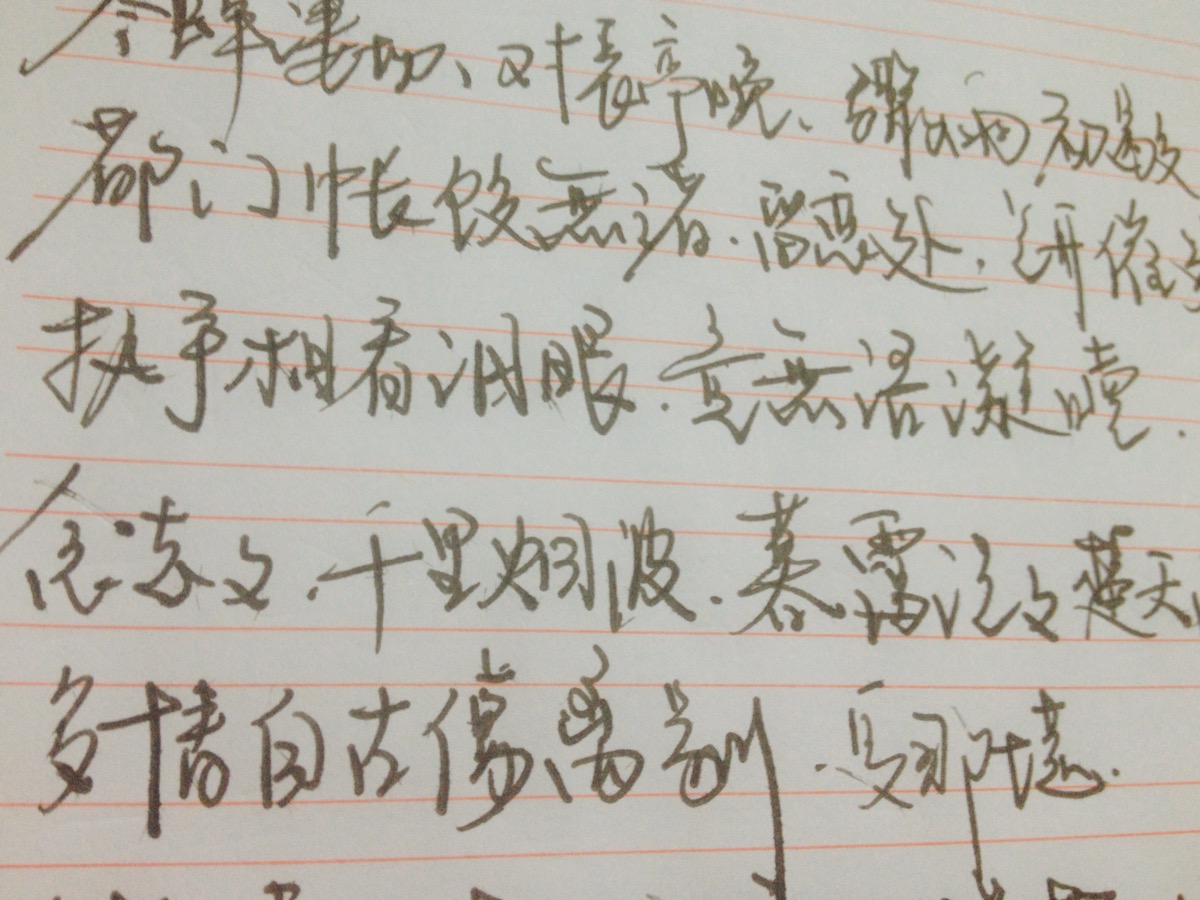 蝉凄切、对長亭晚、骤雨初歇
都门帐饮無绪.留恋处.舟催
执手相看泪眼.竟無语凝噎.
念去去.千里烟波.暮霭沉沉楚天
多情自古傷离别.更那堪.